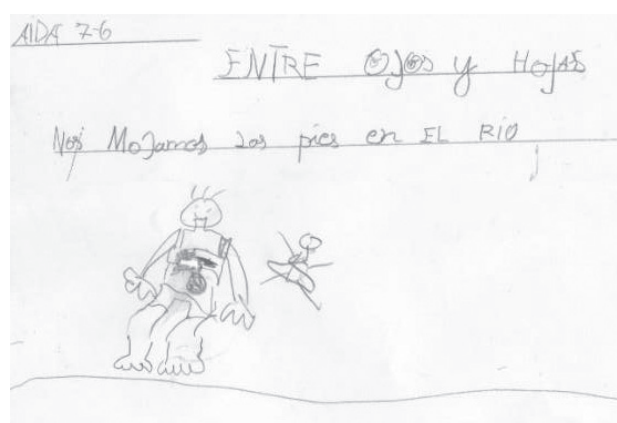 AIDA 7-6
ENTRE OJOS y HOJAS
Nos MOJamos Los pies en EL RIO